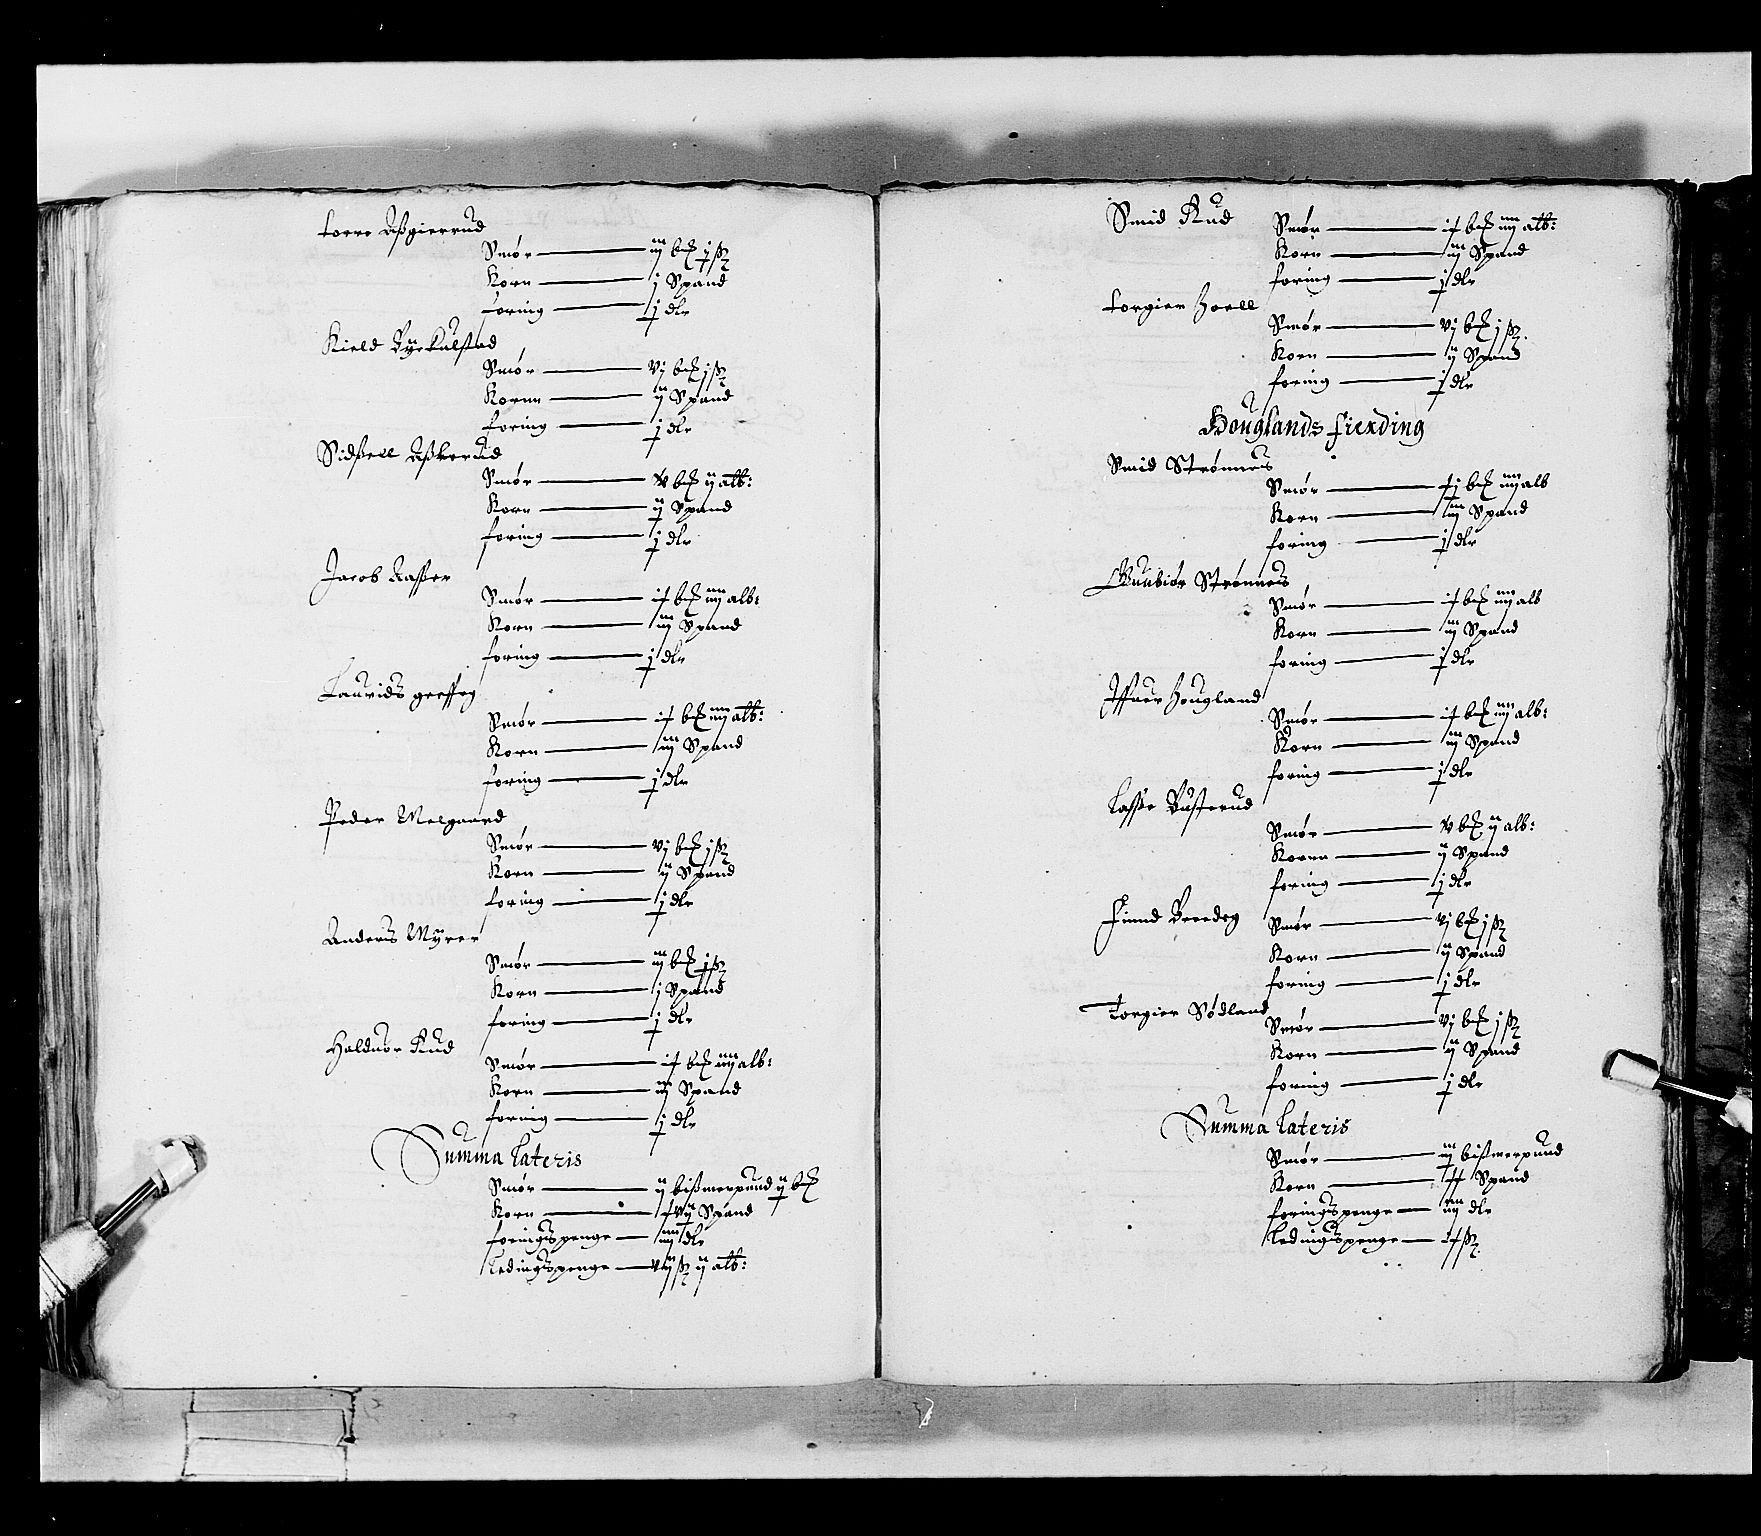 Torre Aßgierrud
Smør — iij bꝫ j ß
Korn — j Spand
foring — j dlr
Kield Byekulstad
Smør — vj bꝫ j ß
Kornn — ij Spand
foring — j dlr
Sidßell Aßkerud
Smør — v bꝫ ij alb:
Korn — ij Spand
foring — j dlr
Jacob Aaßer
Smør — ix bꝫ iiij alb:
Korn — iij Spand
foring — j dlr
Laurids
Smør — ix bꝫ iiij alb:
Korn — iij Spand
foring — j dlr
Peder Melgaard
Smør — vj bꝫ j ß
Korn — ij Spand
foring — j dlr
Anders Myrer
Smør — iij bꝫ j ß
Korn — j Spand
foring — j dlr
Halduor Rud
Smør — ix bꝫ iiij alb:
Korn — iij Spand
foring — j dlr
Summa Lateris
Smør — ij bißmerpund ij bꝫ
Korn — xvij Spand
foringspenge — iiij dlr
Ledingspenge — vij ß ij alb:
Smid Rud
Smør — ix bꝫ iiij alb:
Korn — iij Spand
foring — j dlr
Torgier Hoell
Smør — vj bꝫ j ß
Korn — ij Spand
foring — j dlr
Houglands fierding
Smid Strømnes
Smør — xj bꝫ iiij alb
Korn — iij Spand
foring — j dlr
Gunbiør Strømnes
Smør — ix bꝫ iiij alb
Korn — iij Spand
foring — j dlr
Iffuer Hougland
Smør — ix bꝫ iiij alb:
Korn — iij Spand
foring — j dlr
Laße Busterud
Smør — v bꝫ ij alb:
Kornn — ij Spand
foring — j dlr
Finnd Breedeg
Smør — vj bꝫ j ß
Korn — ij Spand
foring — j dlr
Torgier Sødland
Smør — vj bꝫ j ß
Korn — ij Spand
foring — j dlr
Summa Lateris
Smør — iij bißmerpund
Korn — xx Spand
foringspenge — iiij dlr
Ledingspenge — ix ß